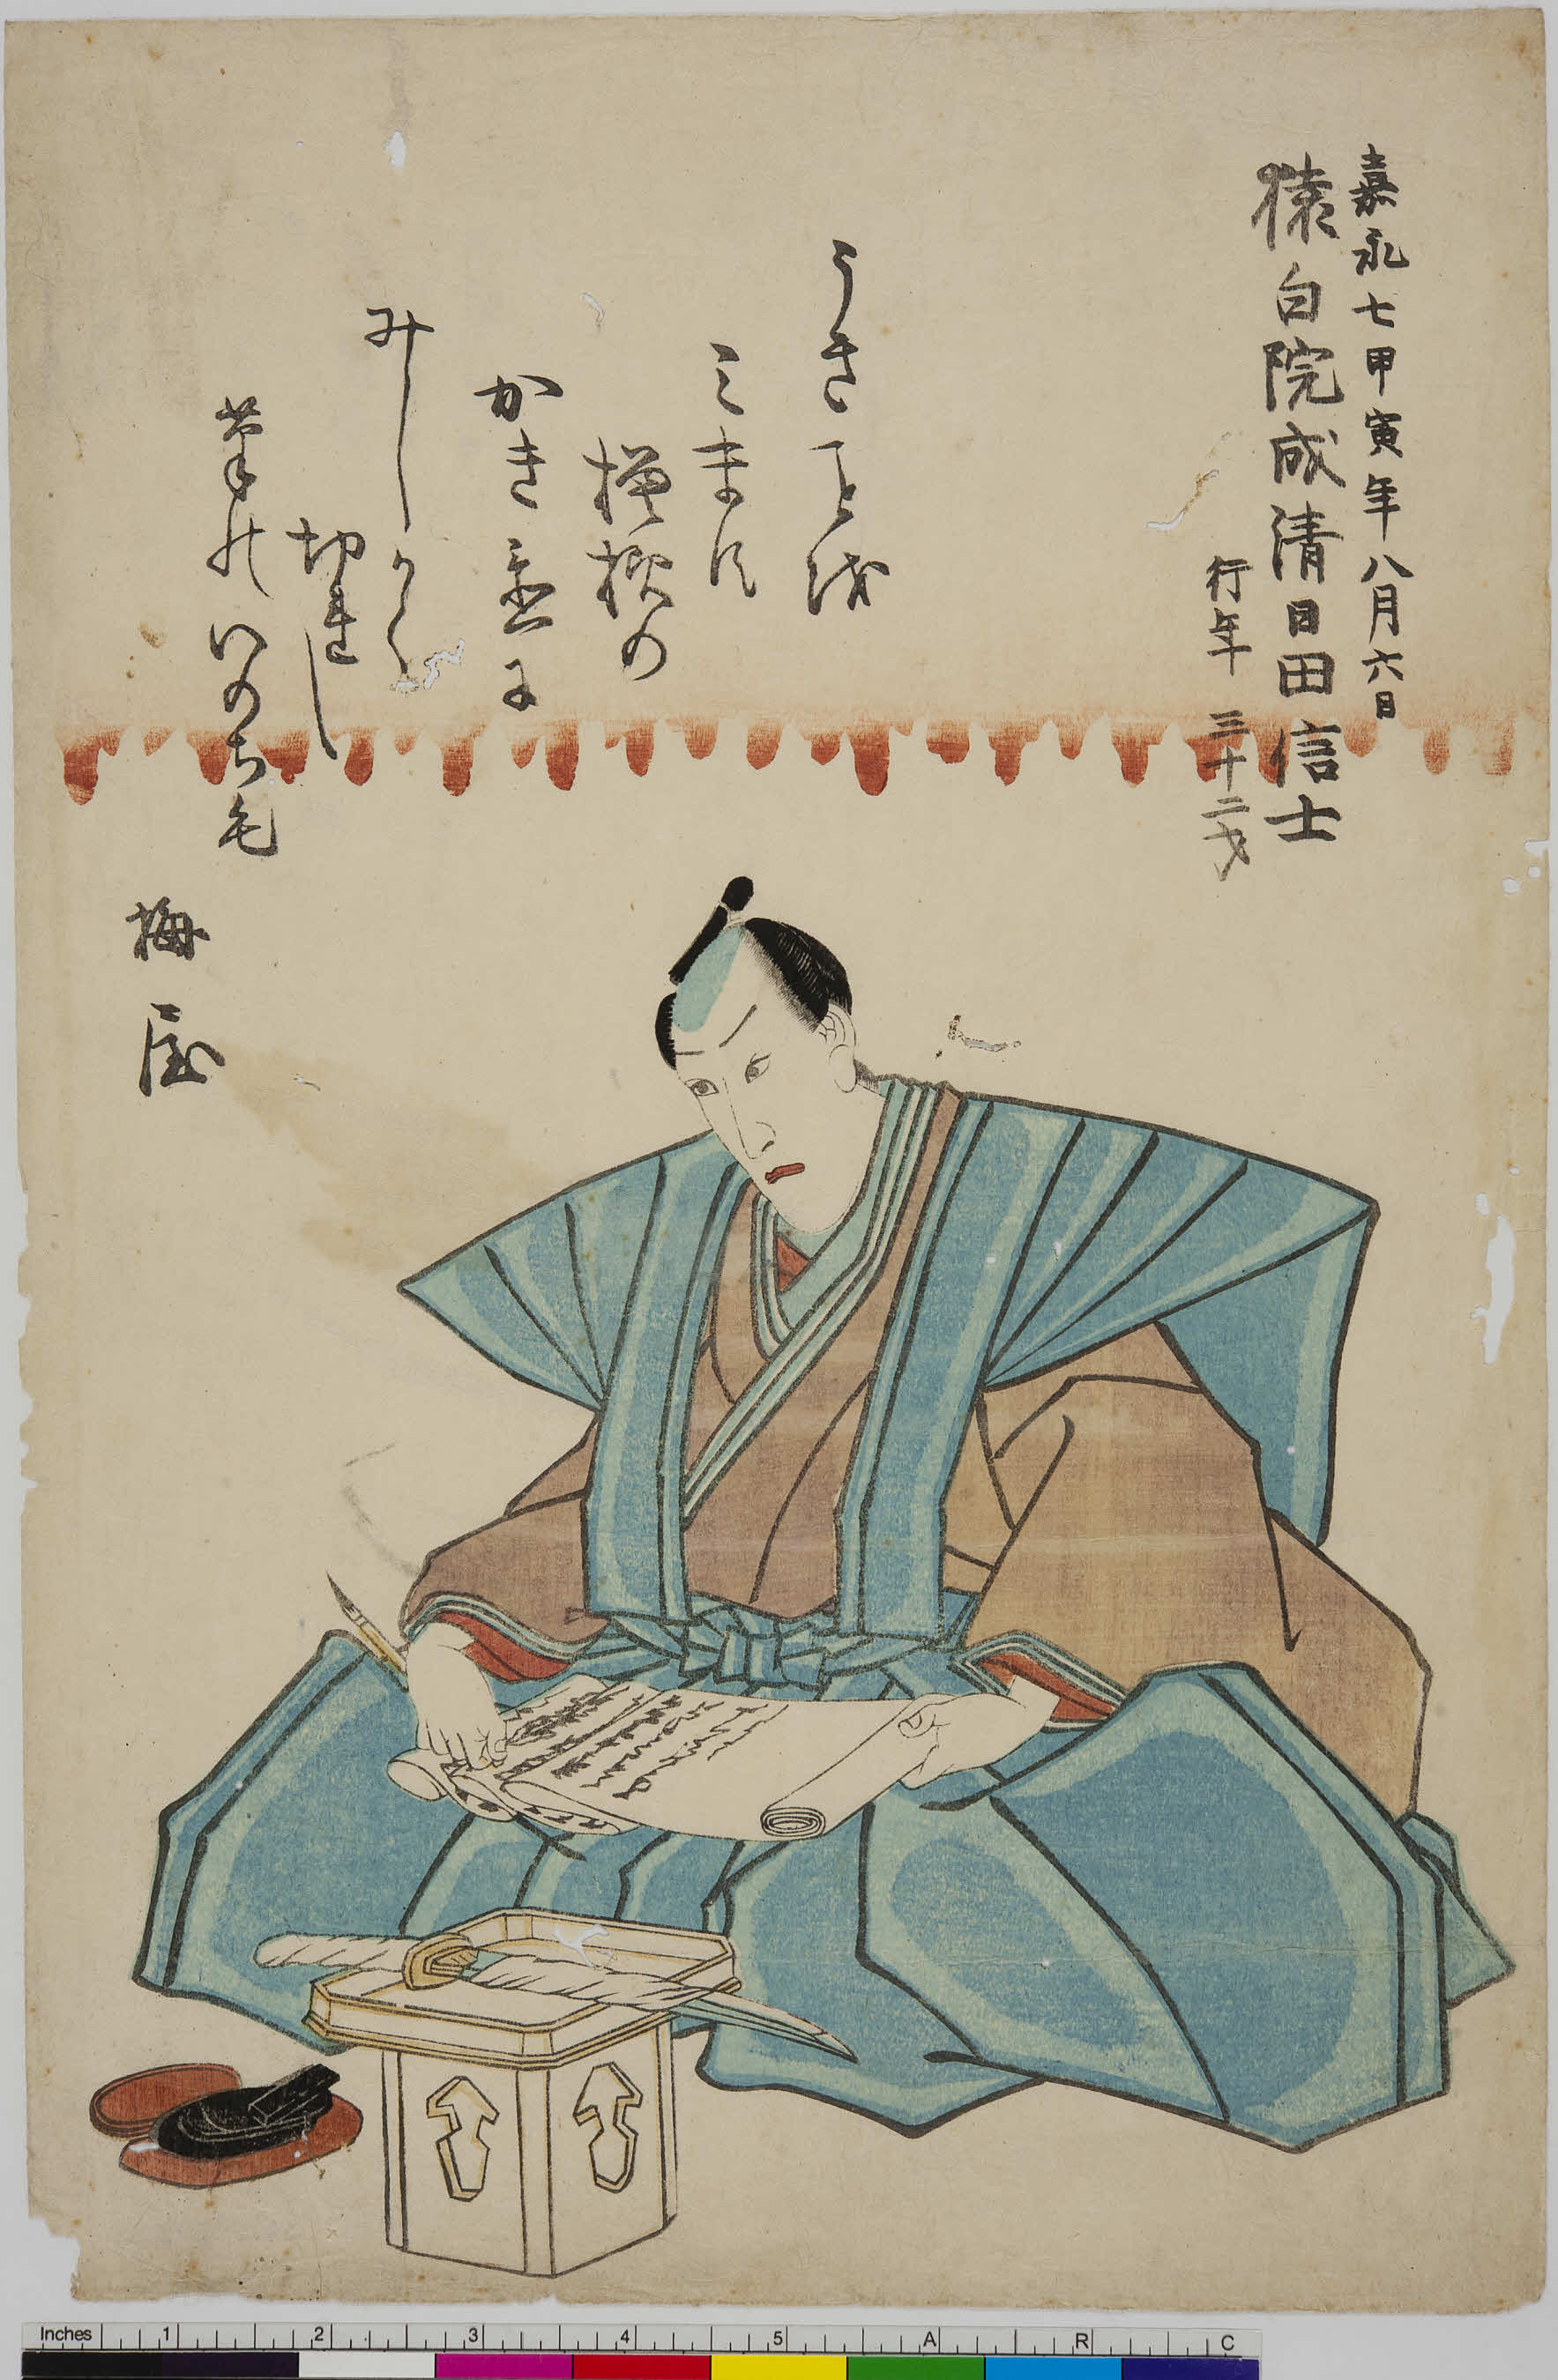 嘉永七甲寅年八月六日
猿白院成清日田信士
行年三十二才
うきことを
ミます
の
かき置に
みしかく
切れし
筆のいのち毛
梅屋
Inches 1 2 3 4 5 A R C